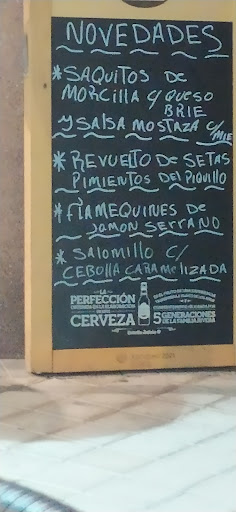 NOVEDADES
*SAQUITOS DE
MORCILLA C/ QUESO
BRIE
Y SALSA MOSTAZA C/
MIE
*REVUELTO DE SETAS
PIMIENTOS DEL PIQUILLO
*FLAMEQUINES DE
JAMON SERRANO
*SALOMILLO C/
CEBOLLA CARAMELIZADA
LA
PERFECCIÓN
CERVEZA
5 GENERACIONES
DE LA FAMILIA RIVERA
Estrella Galicia